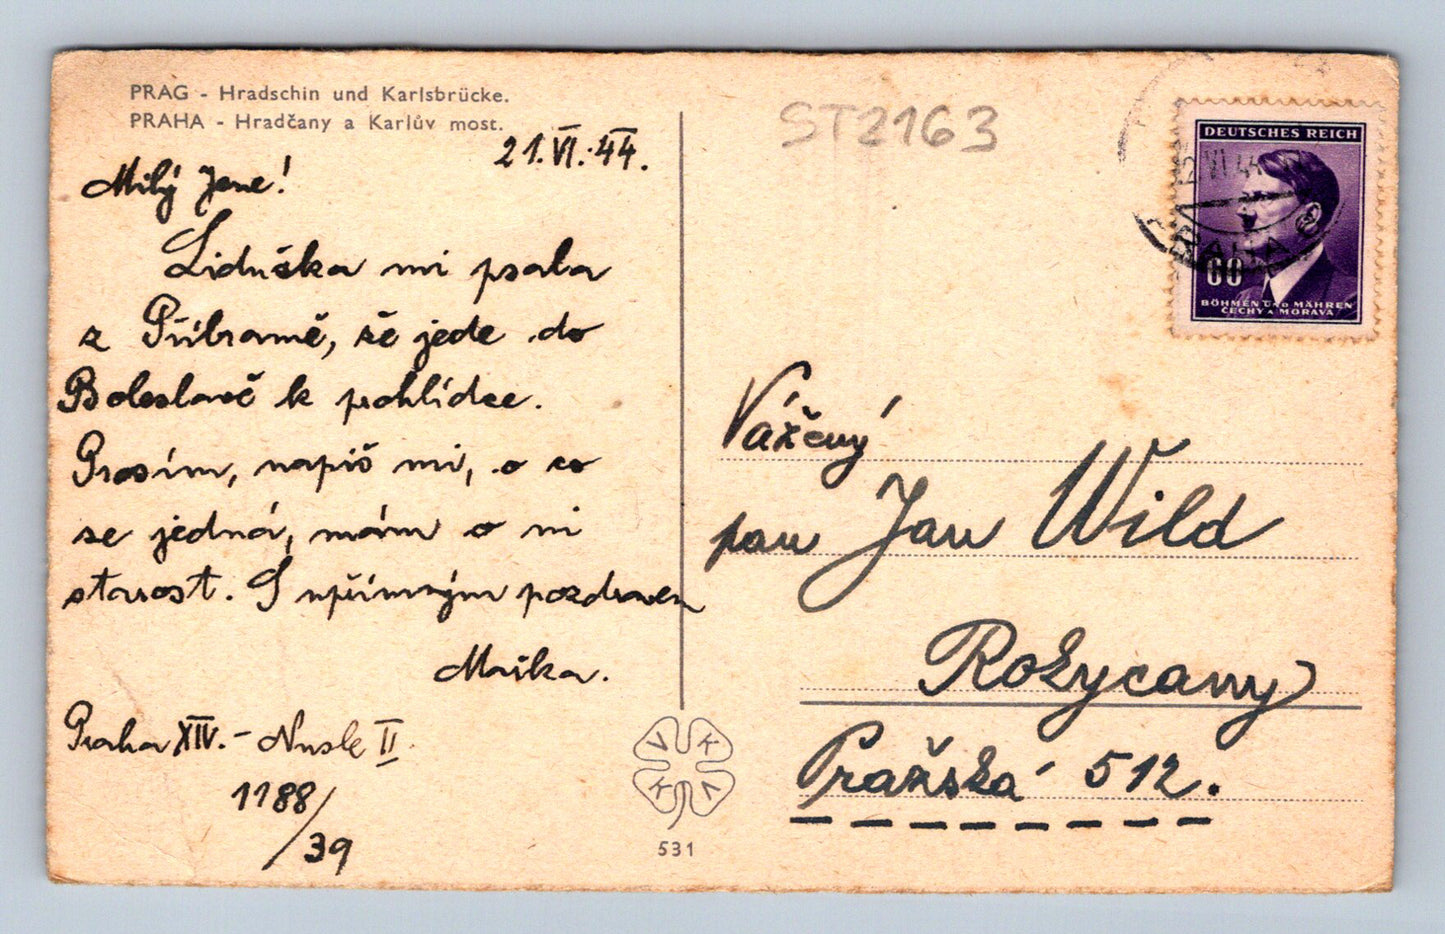 PRAG - Hradschin und Karlsbrücke.
PRAHA - Hradčany a Karlův most.
21.VI.44.
Milý Jene!
Liduška mi psala
z Příbramě, že jede do
Boleslavě k prohlídce.
Prosím, napiš mi, o co
se jedná, mám o ni
starost. S upřímným pozdravem
Maška.
Praha XIV. - Nusle II.
1188/39
VKVK
531
ST2163
DEUTSCHES REICH
VI 44
PRAHA
60
BÖHMEN UND MÄHREN
ČECHY A MORAVA
Vážený
pan Jan Wild
Rokycany
Pražská 512.